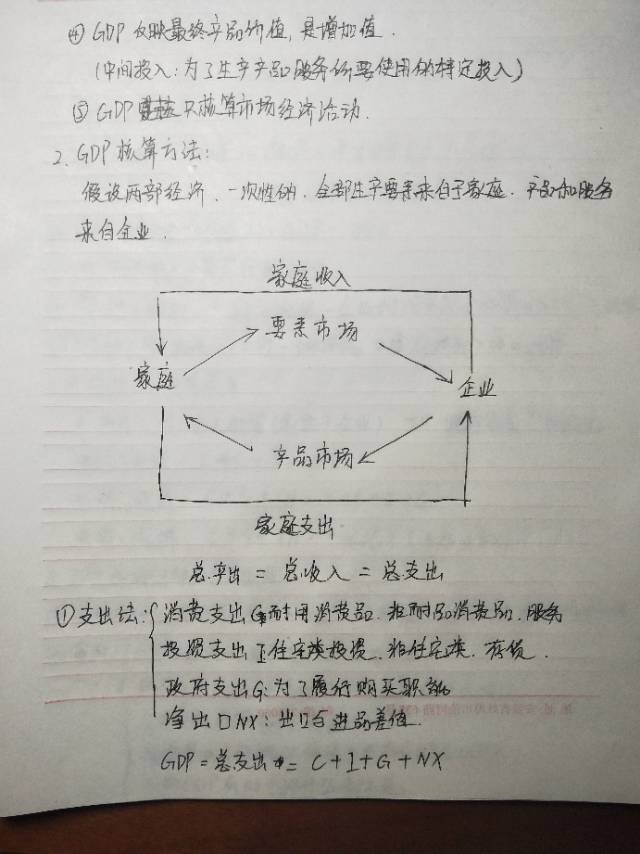 ④ GDP反映最终产品价值,是增加值.
(中间投入:为了生产产品服务所要使用的特定投入)
⑤ GDP 只核算市场经济活动.
2. GDP核算方法:
假设两部经济、一次性的.全部生产要素来自于家庭.产品和服务
来自企业.
家庭收入
要素市场
家庭
企业
产品市场
家庭支出
总产出 = 总收入 = 总支出
①支出法: 消费支出C 耐用消费品.非耐品消费品.服务
投资支出I 住宅类投资.非住宅类.存货.
政府支出G:为了履行购买职能
净出口NX:出口与进品差值.
GDP = 总支出 = C+I+G+NX